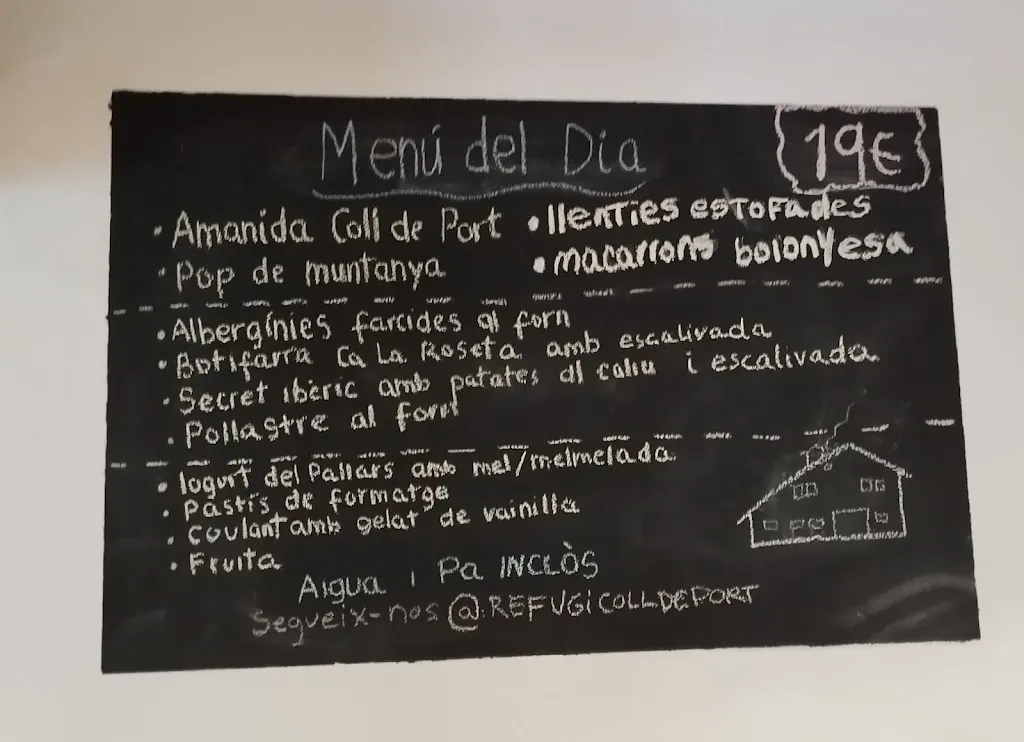 Menú del Dia
19€
· Amanida Coll de Port
· Pop de muntanya
· llenties estofades
· macarrons bolonyesa
· Albergínies farcides al forn
· Botifarra Ca La Roseta amb escalivada
· Secret ibèric amb patates al caliu i escalivada
· Pollastre al forn
· Iogurt del Pallars amb mel/melmelada
· Pastís de formatge
· Coulant amb gelat de vainilla
· Fruita
Aigua i Pa INCLÒS
Segueix-nos @REFUGICOLLDEPORT